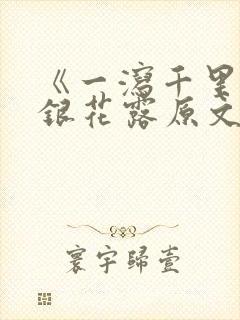 《一泻千里
银花露原文
寰宇歸壹